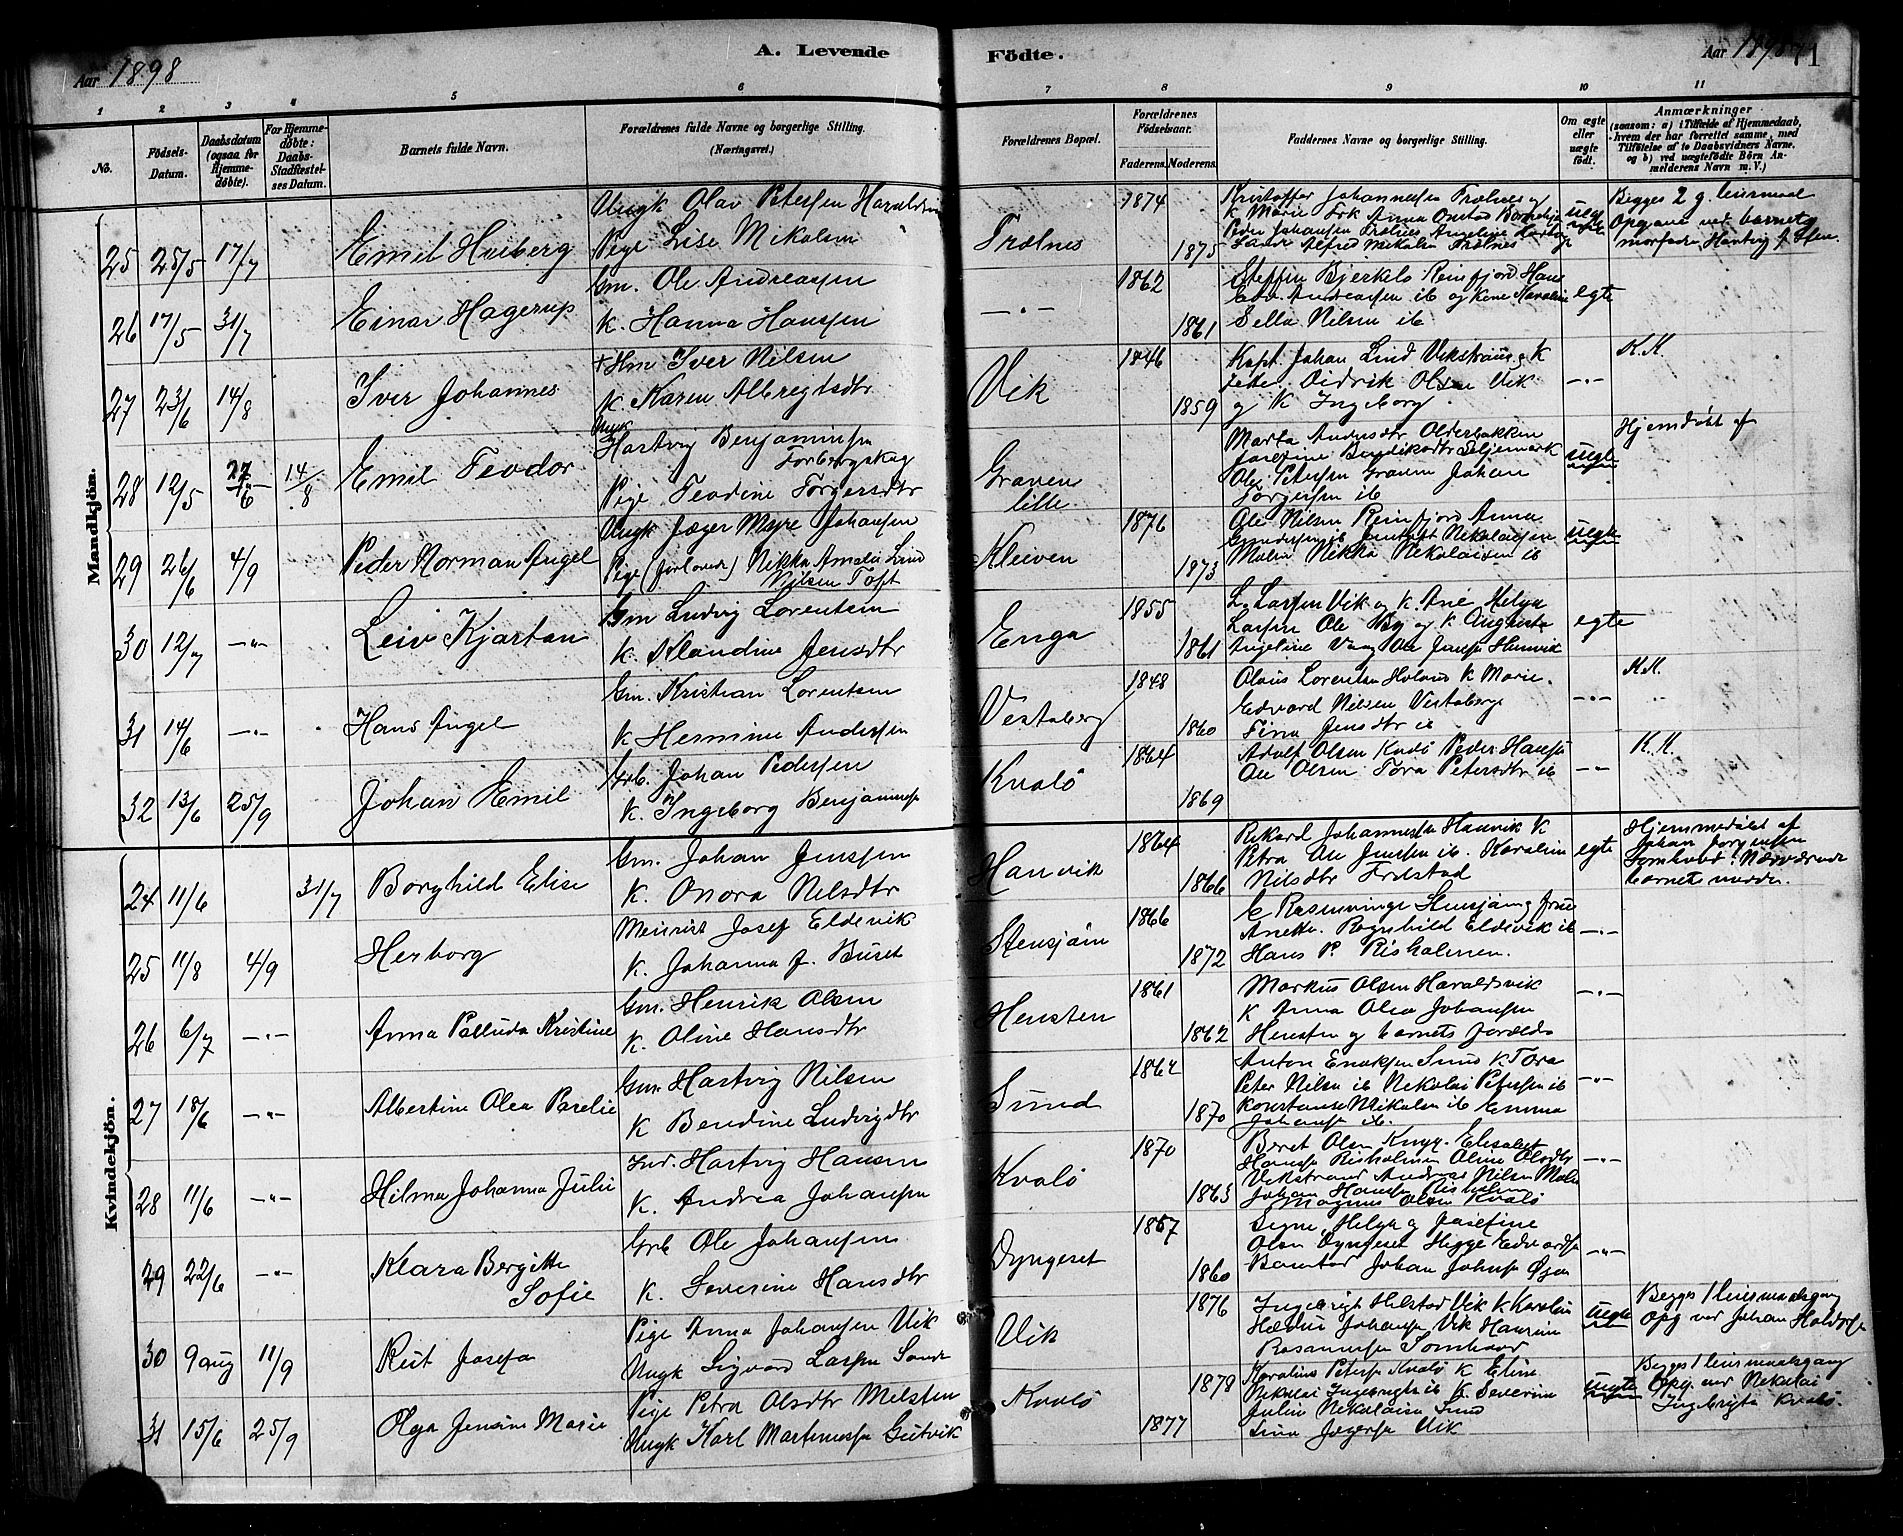 Aar 1898
A. Levende
Födte.
Aar 1898
71
1 2 3 4 5 6 7 8 9 10 11
No.
Födsels-
Datum.
Daabsdatum
(ogsaa for
Hjemme-
døbte).
For Hjemme-
døbte:
Daabs-
Stadfæstel-
ses Datum.
Barnets fulde Navn.
Forældrenes fulde Navne og borgerlige Stilling.
(Næringsvei.)
Forældrenes Bopæl.
Forældrenes
Födselsaar.
Faderens. Moderens.
Faddernes Navne og borgerlige Stilling.
Om ægte
eller
uægte
født.
Anmærkninger
(saasom: a) i Tilfælde af Hjemmedaab,
hvem der har forrettet samme, med
Tilföielse af to Daabsvidners Navne,
og b) ved uægtefödte Börn An-
melderens Navn m. V.)
Mandkjön.
25 25/5 17/7 Emil Heiberg
Ungk Olav Petersen Haraldsvik
Pige Lise Mikalsen
Trælnes 1874 1875
Kristoffer Johannesen Trælnes og
K Marie Frk Anna Onstad
Peder Johansen Trælnes Angeline
Alfred Mikalsen Trælnes
uegte
Bigges 2 g. leiermaal
Opgave ved barnets
morfader Hartvig
26 17/5 31/7 Einar Hagerup
Gm. Ole Andreassen
K. Hanna Hanssen
—"— 1862 1861
Steffen Bjerkelo Reinfjord Hans
Andreassen ib og Kone Karoline
Sella Nilsen ib
egte
27 23/6 14/8 Iver Johannes
+ Hm Iver Nilsen
K. Karen Albregtsdtr
Vik 1846 1859
Kapt. Johan Lind Vikstrøm og K
Jette. Didrik Olsen Vik
og K Ingeborg.
—"—
K.K.
28 12/5 27/6 14/8 Emil Teodor
Ungk
Hartvig Benjaminsen
Torbergskag
Pige Teodine Torgersdtr
Graven
lille
Marta Andersdtr Olderbakken
Josefine Bendiksdtr
Ole Petersen Graven Johan
Torgersen ib
uegte
Hjemdøbt af
29 26/6 4/9 Peder Norman Angel
Ungk Jæger Myre Johansen
Pige (forlovede) Nikka Amalie Lund
Nilsen Toft
Kleiven 1876 1873
Ole Nilsen Reinfjord Anna
Nikolaisen
Nikka Nikolaisen ib
uegte
30 12/7 —"— Leiv Kjartan
Gm Ludvig Lorentsen
K. Klaudine Jensdtr
Enga 1855 1861
L. Larsen Vik og K. Ane Helga
Larsen Ole By og K Augusta
Angeline Vaag Ole Jensen Henvik
egte
31 14/6 —"— Hans Angel
Gm. Kristian Lorentsen
K Hermine Andersen
Vestaberg 1848 1860
Olaus Lorentsen Holand K Marie.
Edvard Nilsen Vestaberg
Fina Jensdtr ib
—"—
K.K.
32 13/6 25/9 Johan Emil
Grb. Johan Pedersen
K. Ingeborg Benjaminsen
Kvalö 1864 1869
Adolf Olsen Kvalö Peder Hansen
Ole Olsen Tora Petersdtr ib
—"—
K.K.
Kvindekjön.
24 11/6 31/7 Borghild Elise
Gm. Johan Jenssen
K. Onora Nilsdtr
Hanvik 1864 1866
Rikard Johannessen Hanvik K
Petra Ole Jenssen ib. Karoline
Nilsdtr
egte
Hjemmedöbt af
Johan Jörgensen
Somhovd. Nærværende
barnets moder.
25 11/8 4/9 Herborg
Meierist Josef Eldevik
K. Johanna J. Buset
Stensjöen 1866 1872
E Rosenvinge Stensjöen og frue
Anette. Ragnhild Eldevik ib
Hans P. Risholmen.
—"—
26 6/7 —"— Anna Palluda Kristine
Gm. Henrik Olsen
K. Oline Hansdtr
Hensten 1861 1862
Markus Olsen Haraldsvik
K Anna Olea Johansen
Hensten og barnets foreldre
—"—
27 18/6 —"— Albertine Olea Parelie
Gm Hartvig Nilsen
K Bendine Ludvigdtr
Sund 1864 1870
Anton Enoksen Sund K. Tora
Peter Nilsen ib Nikolai Petersen ib
Konstanse Mikalsen ib Emma
Johansen ib.
—"—
28 11/6 —"— Hilma Johanna Julie
Ind. Hartvig Hansen
K. Andrea Johansen
Kvalö 1870 1863
Beret Olsen Elisabet
Hansen Risholmen Oline Olsdtr
Vikstrand Andreas Nilsen
Johan Hansen Risholmen
Magnus Olsen Kvalö
—"—
29 22/6 —"— Klara Bergitte
Sofie
Grb Ole Johansen
K. Severine Hansdtr
Dyngeset 1867 1860
Signe Helga og Josefine
Olsen Dyngeset Edvardsen
Johan Johnsen
—"—
30 9 aug 11/9 Rut Josefa
Pige Anna Johansen Vik
Ungk Sigvard Larsen
Vik 1876
Ingebrigt Hilstad Vik K Karolin
Johansen Vik
Rosannesen Somhovd
uegte
Begges 1 leiermaalsgang
Opg ved Johan Haldorsen
31 15/6 25/9 Olga Jensine Marie
Pige Petra Olsdtr Melsten
Ungk Karl Martinussen Gutvik
Kvalö 1878 1877
Karolius Petersen Kvalö K Eline
Nikolai Ingebrigts ib K. Severine
Julie Nikolaisen Sund
Lina Jægersen Vik
uegte
Begges 1 leiermaalsgang
Opg. ved Nikolai
Ingebrigts Kvalö.